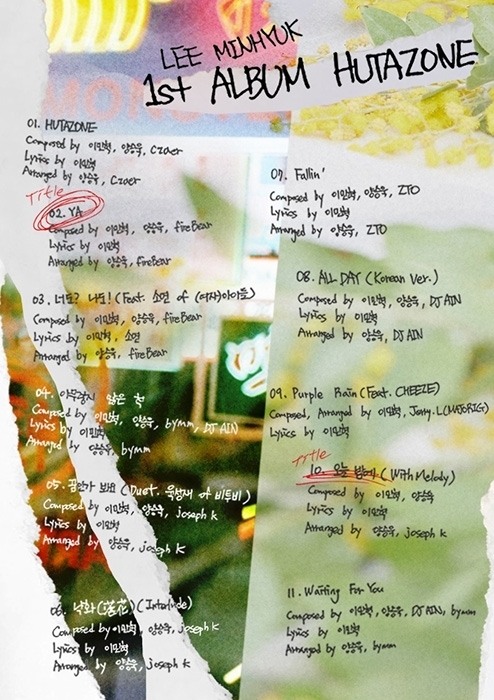 LEE MINHYUK
1st ALBUM HUTAZONE
01. HUTAZONE
Composed by 이민혁, 양승욱, CZaer
Lyrics by 이민혁
Arranged by 양승욱, CZaer
Title
02. YA
Composed by 이민혁, 양승욱, fireBear
Lyrics by 이민혁
Arranged by 양승욱, fireBear
03. 너도? 나도! (Feat. 소연 of (여자)아이들)
Composed by 이민혁, 양승욱, fireBear
Lyrics by 이민혁, 소연
Arranged by 양승욱, fireBear
04. 아무렇지 않은 척
Composed by 이민혁, 양승욱, bymm, DJ AIN
Lyrics by 이민혁
Arranged by 양승욱, bymm
05. 꿈인가 보여 (Duet. 육성재 of 비투비)
Composed by 이민혁, 양승욱, joseph k
Lyrics by 이민혁
Arranged by 양승욱, joseph k
06. 낙화(落花) (Interlude)
Composed by 이민혁, 양승욱, joseph k
Lyrics by 이민혁
Arranged by 양승욱, joseph k
07. Fallin'
Composed by 이민혁, 양승욱, ZTO
Lyrics by 이민혁
Arranged by 양승욱, ZTO
08. ALL DAY (Korean Ver.)
Composed by 이민혁, 양승욱, DJ AIN
Lyrics by 이민혁
Arranged by 양승욱, DJ AIN
09. Purple Rain (Feat. CHEEZE)
Composed, Arranged by 이민혁, Jerry.L(MAJORIGJ)
Lyrics by 이민혁
Title
10. 오늘 밤에 (With Melody)
Composed by 이민혁, 양승욱
Lyrics by 이민혁
Arranged by 양승욱, joseph k
11. Waiting For You
Composed by 이민혁, 양승욱, DJ AIN, bymm
Lyrics by 이민혁
Arranged by 양승욱, bymm